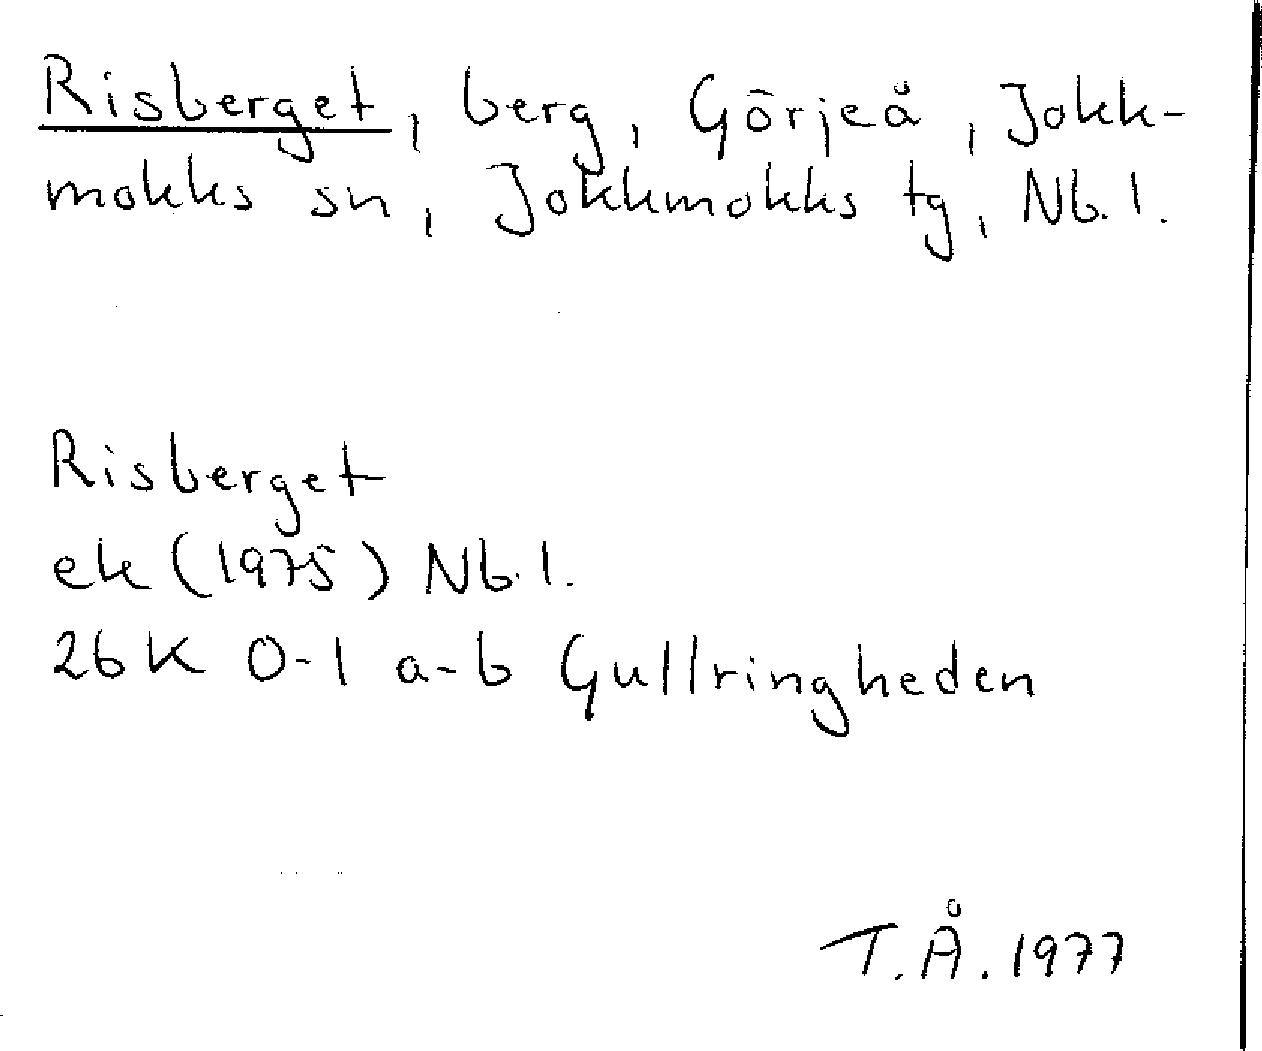 Risberget, berg, Görjeå, Jokk-
mokks sn, Jokkmokks tg, Nb. l.
Risberget
ek (1975) Nb. l.
26 K 0-1 a-b Gullringheden
T. Å. 1977